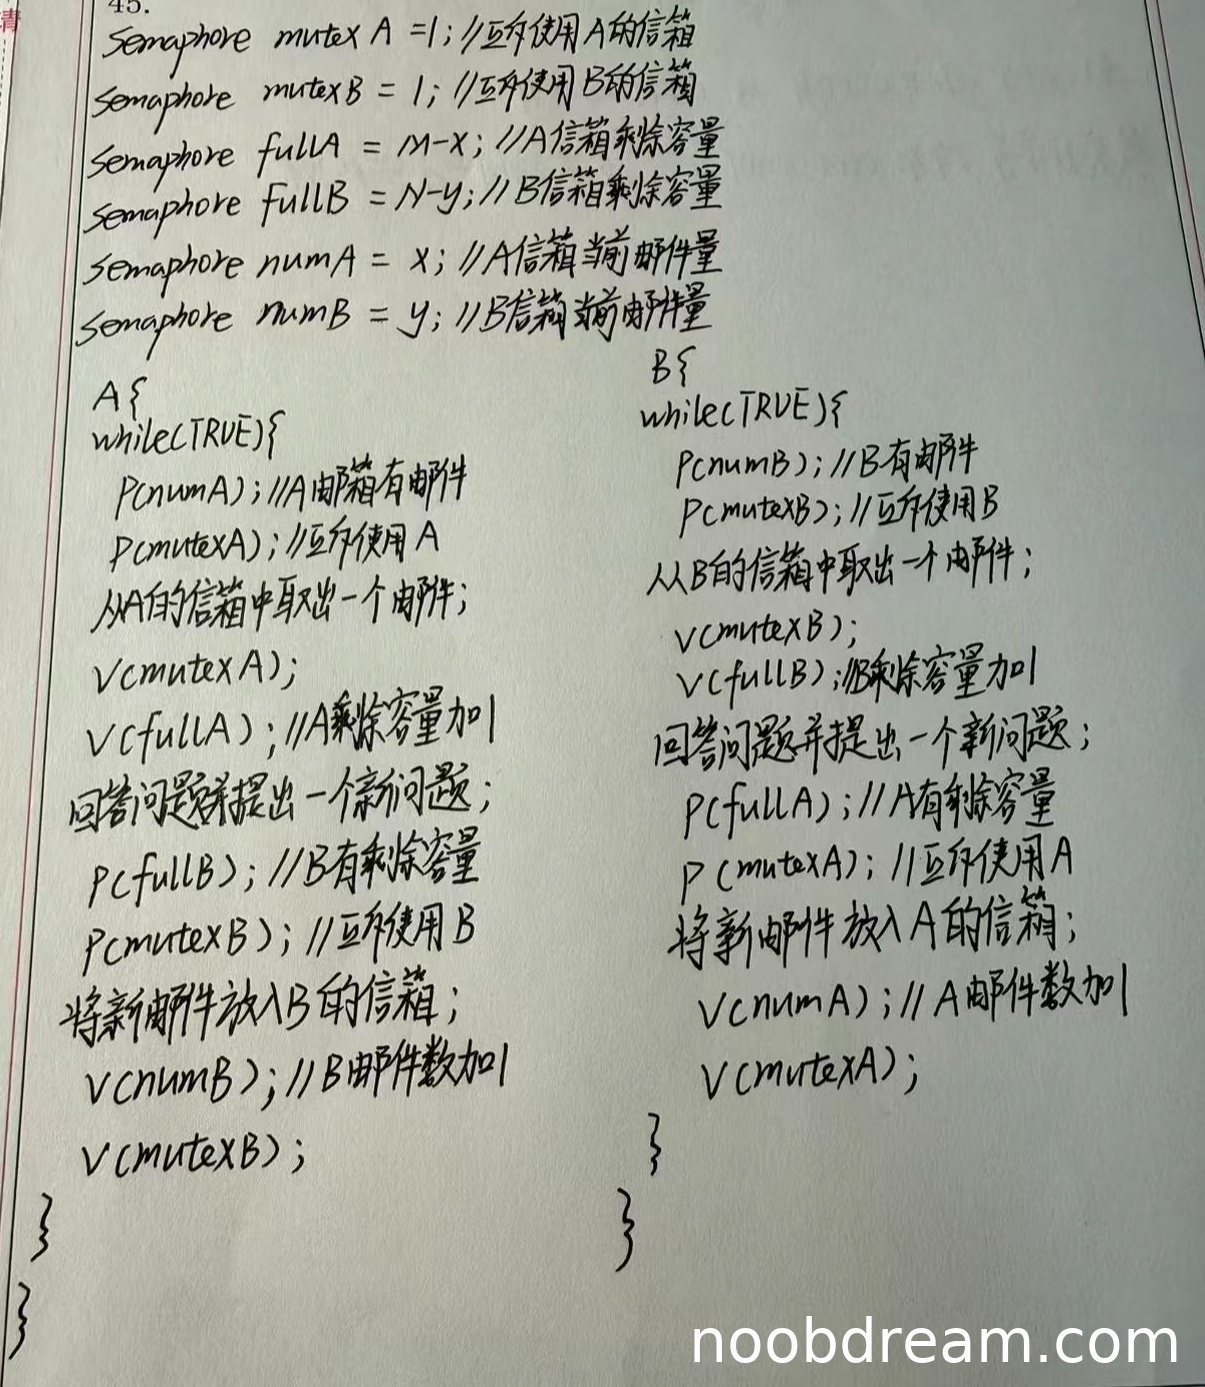 请
45.
Semaphore mutexA =1; //互斥使用A的信箱
Semaphore mutexB = 1; //互斥使用B的信箱
Semaphore fullA = M-x; //A信箱剩余容量
Semaphore fullB = N-y; //B信箱剩余容量
Semaphore numA = x; //A信箱当前邮件量
Semaphore numB = y; //B信箱当前邮件量
A{
while(TRUE){
P(numA); //A邮箱有邮件
P(mutexA); //互斥使用A
从A的信箱中取出一个邮件;
V(mutexA);
V(fullA); //A剩余容量加1
回答问题并提出一个新问题;
P(fullB); //B有剩余容量
P(mutexB); //互斥使用B
将新邮件放入B的信箱;
V(numB); //B邮件数加1
V(mutexB);
}
}
B{
while(TRUE){
P(numB); //B有邮件
P(mutexB); //互斥使用B
从B的信箱中取出一个邮件;
V(mutexB);
V(fullB); //B剩余容量加1
回答问题并提出一个新问题;
P(fullA); //A有剩余容量
P(mutexA); //互斥使用A
将新邮件放入A的信箱;
V(numA); //A邮件数加1
V(mutexA);
}
}
noobdream.com